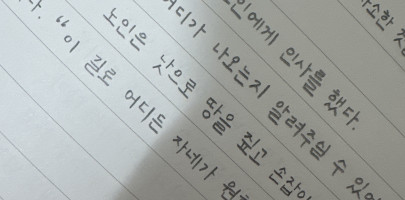 사소한 것
인에게 인사를 했다.
어디가 나오는지 알려주실 수 있
노인은 낫으로 땅을 짚고 손잡
다. “이 길로 어디든 자네가 원